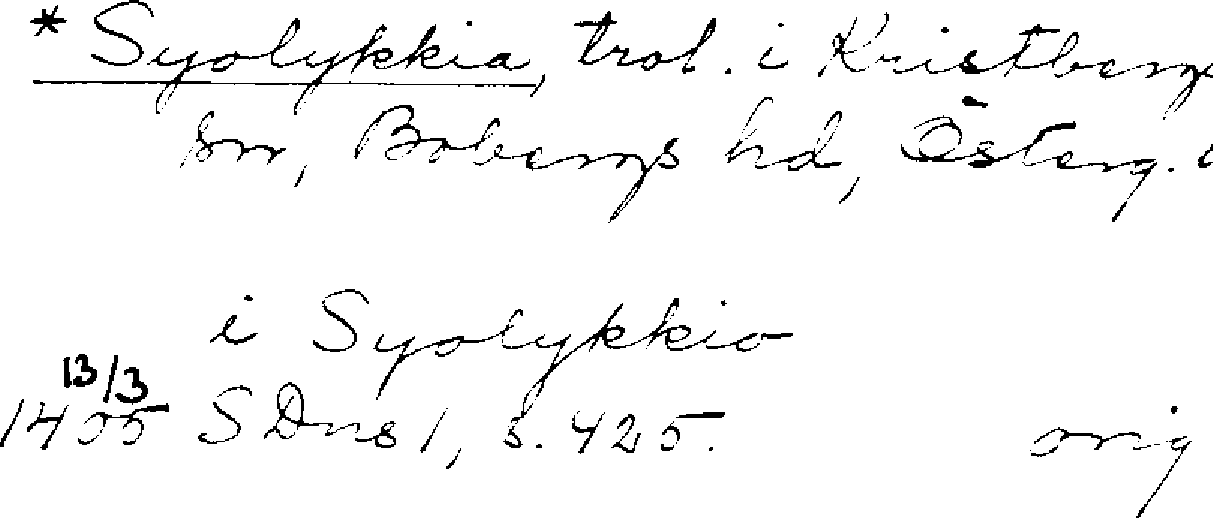 * Syolykkia, trol. i Kristbergs
sn, Bobergs hd, Österg.
i Syolykkio
13/3
1405 SDns 1, s. 425. orig